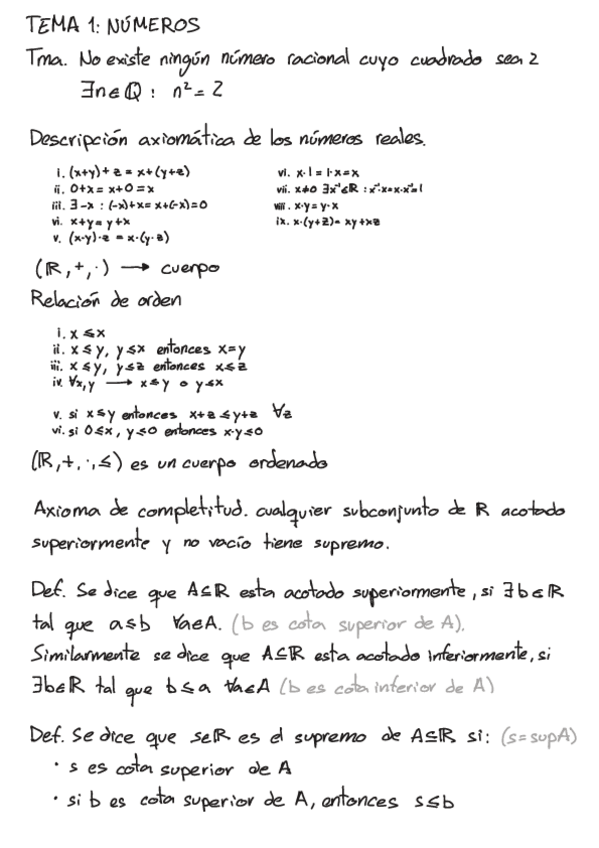 TEMA 1: NÚMEROS
Tma. No existe ningún número racional cuyo cuadrado sea 2
∃n∈ℚ : n² = 2
Descripción axiomática de los números reales.
i. (x+y)+z = x+(y+z)
ii. 0+x = x+0 = x
iii. ∃-x : (-x)+x = x+(-x)=0
vi. x+y = y+x
v. (x·y)·z = x·(y·z)
vi. x·1 = 1·x = x
vii. x≠0 ∃x⁻¹∈ℝ : x⁻¹·x=x·x⁻¹=1
viii. x·y = y·x
ix. x·(y+z) = xy+xz
(ℝ,+,·) → cuerpo
Relación de orden
i. x ≤ x
ii. x ≤ y, y ≤ x entonces x=y
iii. x ≤ y, y ≤ z entonces x ≤ z
iv. ∀x,y → x ≤ y o y ≤ x
v. si x ≤ y entonces x+z ≤ y+z ∀z
vi. si 0 ≤ x, y ≤ 0 entonces x·y ≤ 0
(ℝ,+,·,≤) es un cuerpo ordenado
Axioma de completitud. cualquier subconjunto de ℝ acotado
superiormente y no vacío tiene supremo.
Def. Se dice que A⊆ℝ esta acotado superiormente, si ∃b∈ℝ
tal que a≤b ∀a∈A. (b es cota superior de A).
Similarmente se dice que A⊆ℝ esta acotado inferiormente, si
∃b∈ℝ tal que b≤a ∀a∈A (b es cota inferior de A)
Def. Se dice que s∈ℝ es el supremo de A⊆ℝ si: (s=supA)
· s es cota superior de A
· si b es cota superior de A, entonces s≤b